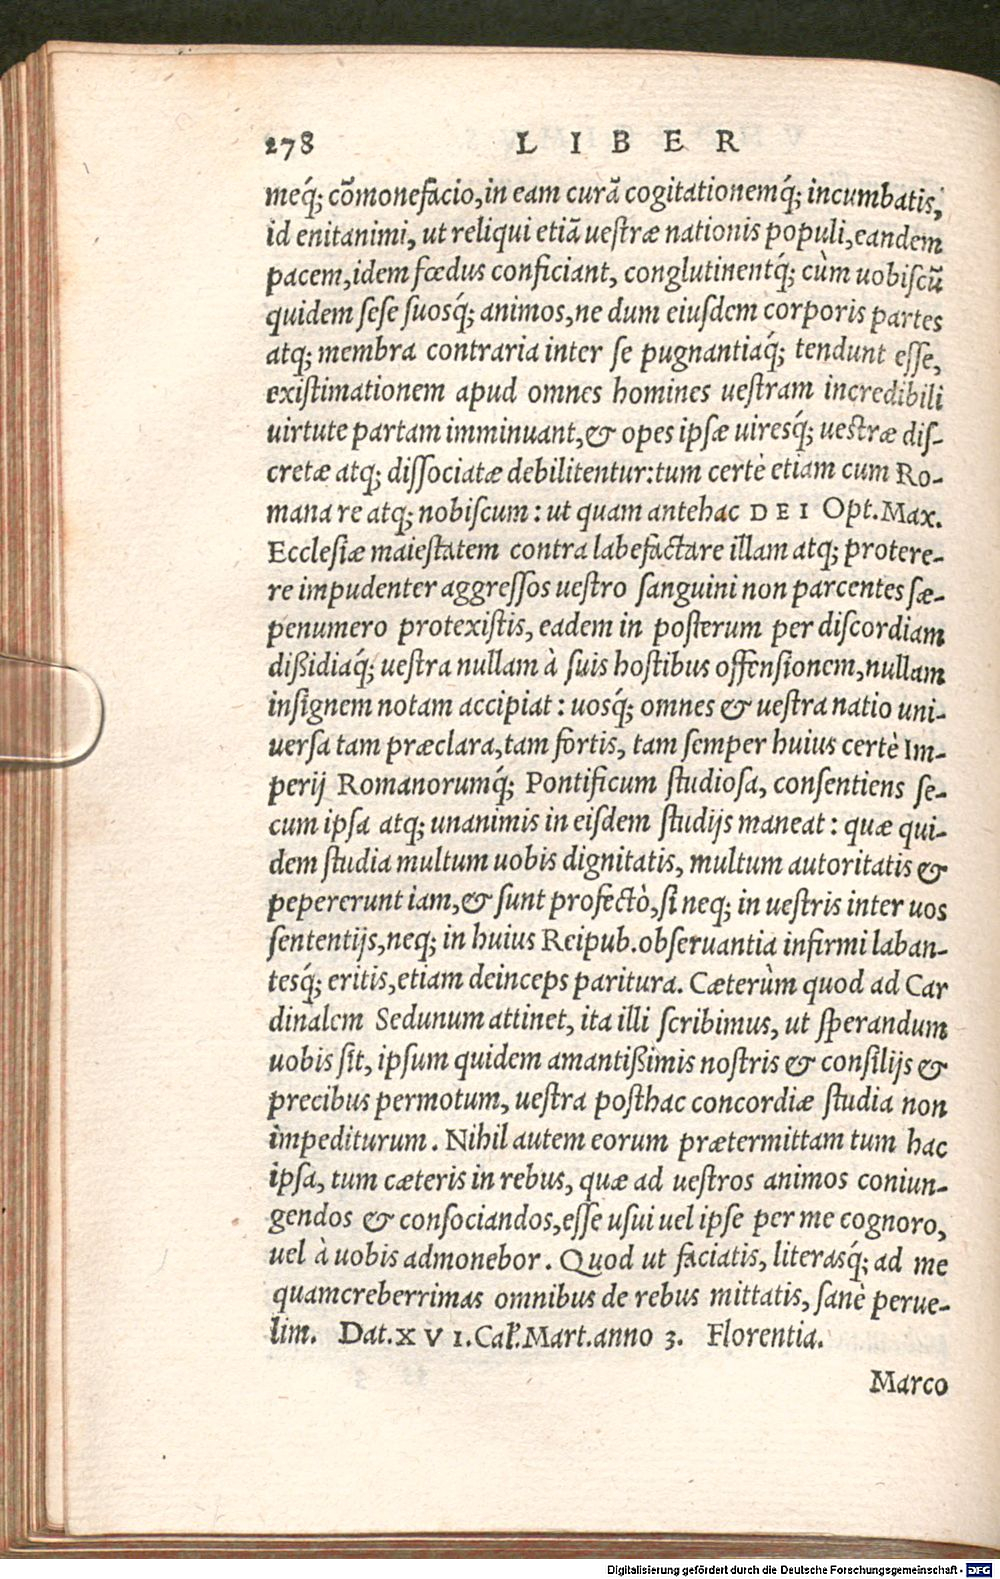 278 LIBER
meq́; cõmonefacio, in eam curã cogitationemq́; incumbatis,
id enitanimi, ut reliqui etiã uestræ nationis populi, eandem
pacem, idem fœdus conficiant, conglutinentq́; cùm uobiscũ
quidem sese suosq́; animos, ne dum eiusdem corporis partes
atq; membra contraria inter se pugnantiaq́; tendunt esse,
existimationem apud omnes homines uestram incredibili
uirtute partam imminuant, & opes ipsæ uiresq́; uestræ dis-
cretæ atq; dissociatæ debilitentur: tum certè etiam cum Ro-
mana re atq; nobiscum: ut quam antehac DEI Opt. Max.
Ecclesiæ maiestatem contra labefactare illam atq; protere-
re impudenter aggressos uestro sanguini non parcentes sæ-
penumero protexistis, eadem in posterum per discordiam
dißidiaq́; uestra nullam à suis hostibus offensionem, nullam
insignem notam accipiat: uosq́; omnes & uestra natio uni-
uersa tam præclara, tam fortis, tam semper huius certè Im-
perij Romanorumq́; Pontificum studiosa, consentiens se-
cum ipsa atq; unanimis in eisdem studijs maneat: quæ qui-
dem studia multum uobis dignitatis, multum autoritatis &
pepererunt iam, & sunt profectò, si neq; in uestris inter uos
sententijs, neq; in huius Reipub. obseruantia infirmi laban-
tesq́; eritis, etiam deinceps paritura. Cæterùm quod ad Car
dinalem Sedunum attinet, ita illi scribimus, ut sperandum
uobis sit, ipsum quidem amantißimis nostris & consilijs &
precibus permotum, uestra posthac concordiæ studia non
impediturum. Nihil autem eorum prætermittam tum hac
ipsa, tum cæteris in rebus, quæ ad uestros animos coniun-
gendos & consociandos, esse usui uel ipse per me cognoro,
uel à uobis admonebor. Quod ut faciatis, literasq́; ad me
quamcreberrimas omnibus de rebus mittatis, sanè perue-
lim. Dat. XVI. Cal̃. Mart. anno 3. Florentia.
Marco
Digitalisierung gefördert durch die Deutsche Forschungsgemeinschaft - DFG